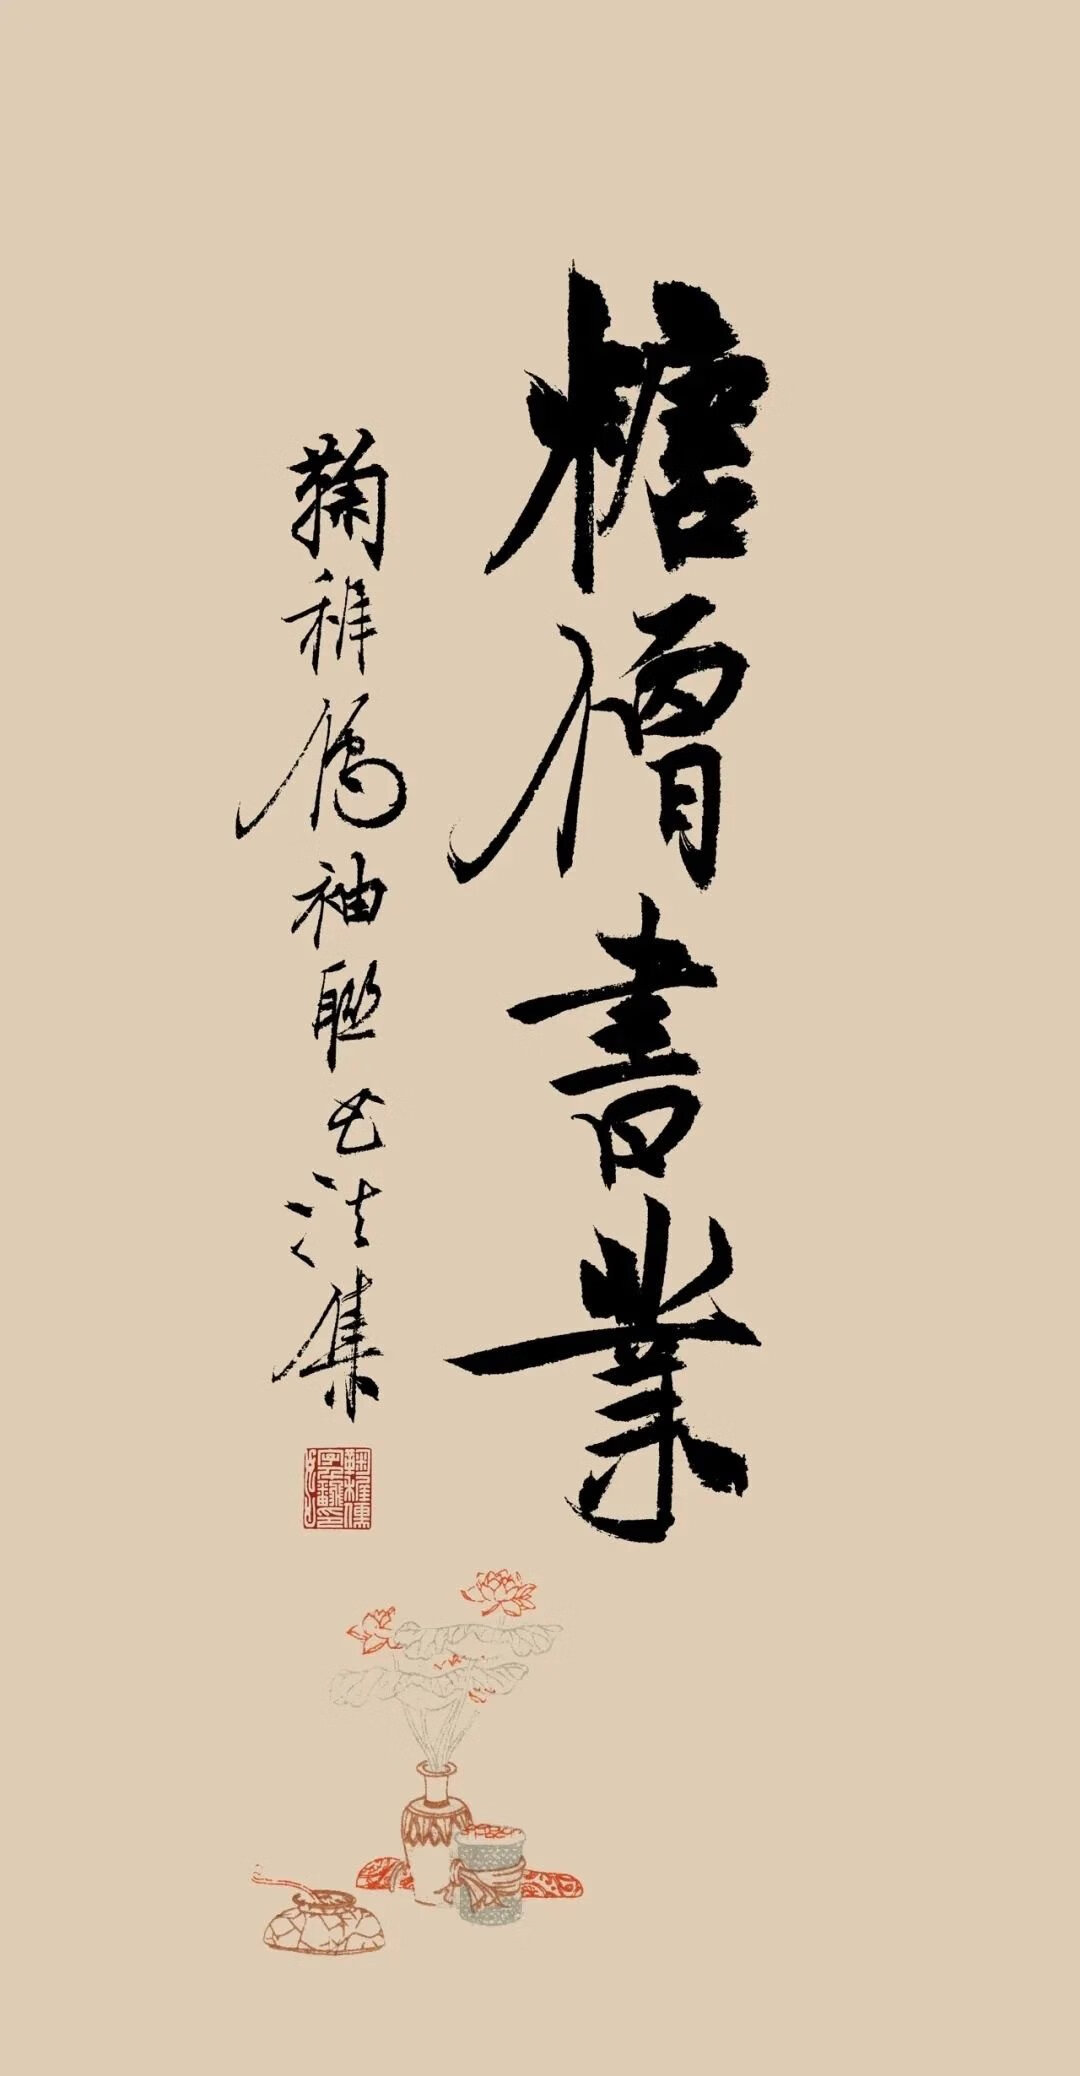 糖僧書業
鞠稚儒袖联书法集